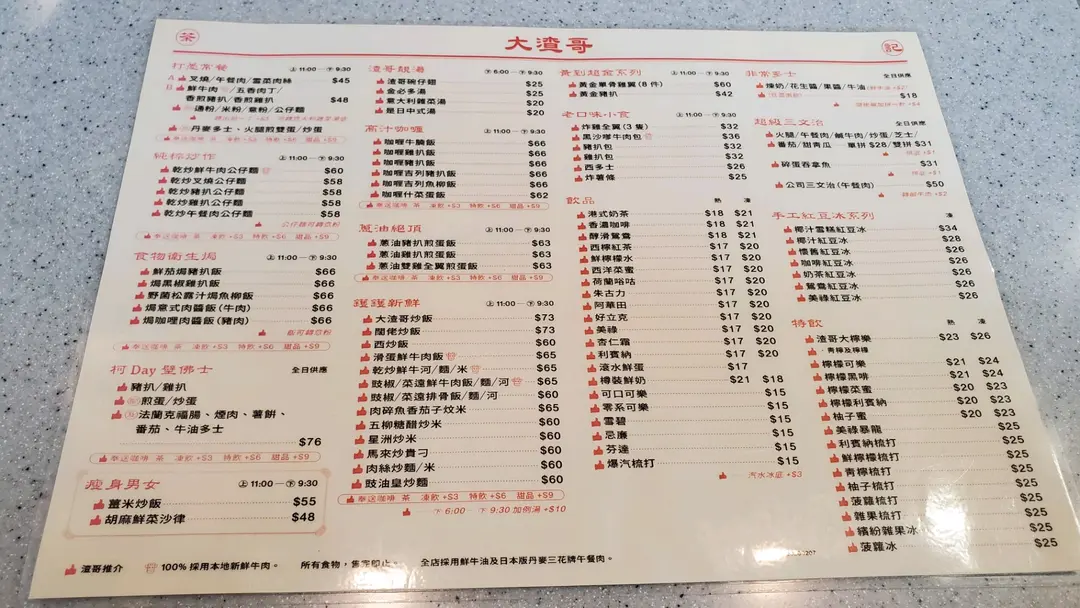 茶
大渣哥
記
打惹常餐 上 11:00 — 下 9:30
A 叉燒/午餐肉/雪菜肉絲 $45
B 鮮牛肉/五香肉丁/
香煎豬扒/香煎雞扒 $48
通粉/米粉/意粉/公仔麵
丹麥多士、火腿煎雙蛋/炒蛋
奉送咖啡 茶 凍飲+$3 特飲+$6 甜品+$9
純粹炒作 上 11:00 — 下 9:30
乾炒鮮牛肉公仔麵 $60
乾炒叉燒公仔麵 $58
乾炒豬扒公仔麵 $58
乾炒雞扒公仔麵 $58
乾炒午餐肉公仔麵 $58
公仔麵可轉意粉
奉送咖啡 茶 凍飲+$3 特飲+$6 甜品+$9
食物衛生焗 上 11:00 — 下 9:30
鮮茄焗豬扒飯 $66
焗黑椒雞扒飯 $66
野菌松露汁焗魚柳飯 $66
焗意式肉醬飯(牛肉) $66
焗咖喱肉醬飯(豬肉) $66
飯可轉意粉
奉送咖啡 茶 凍飲+$3 特飲+$6 甜品+$9
柯 Day 璧佛士 全日供應
豬扒/雞扒
煎蛋/炒蛋
法蘭克福腸、煙肉、薯餅、
番茄、牛油多士
$76
奉送咖啡 茶 凍飲+$3 特飲+$6 甜品+$9
瘦身男女 上 11:00 — 下 9:30
薑米炒飯 $55
胡麻鮮菜沙律 $48
渣哥靚湯 下 6:00 — 下 9:30
渣哥碗仔翅 $25
金必多湯 $25
意大利雜菜湯 $20
是日中式湯 $20
高汁咖喱 上 11:00 — 下 9:30
咖喱牛腩飯 $66
咖喱雞扒飯 $66
咖喱豬扒飯 $66
咖喱吉列豬扒飯 $66
咖喱吉列魚柳飯 $66
咖喱什菜蛋飯 $62
奉送咖啡 茶 凍飲+$3 特飲+$6 甜品+$9
蔥油絕頂 上 11:00 — 下 9:30
蔥油豬扒煎蛋飯 $63
蔥油雞扒煎蛋飯 $63
蔥油雙雞全翼煎蛋飯 $63
奉送咖啡 茶 凍飲+$3 特飲+$6 甜品+$9
鑊鑊新鮮 上 11:00 — 下 9:30
大渣哥炒飯 $73
闊佬炒飯 $73
西炒飯 $60
滑蛋鮮牛肉飯 $65
乾炒鮮牛河/麵/米 $65
豉椒/菜遠鮮牛肉飯/麵/河 $65
豉椒/菜遠排骨飯/麵/河 $60
肉碎魚香茄子炆米 $65
五柳糖醋炒米 $60
星洲炒米 $60
馬來炒貴刁 $60
肉絲炒麵/米 $60
豉油皇炒麵 $60
奉送咖啡 茶 凍飲+$3 特飲+$6 甜品+$9
下 6:00 — 下 9:30 加例湯 +$10
黃到超金系列 上 11:00 — 下 9:30
黃金單骨雞翼(8 件) $60
黃金豬扒 $42
老口味小食 上 11:00 — 下 9:30
炸雞全翼(3 隻) $32
黑沙嗲牛肉包 $36
豬扒包 $32
雞扒包 $32
西多士 $26
炸薯條 $25
飲品 熱 凍
港式奶茶 $18 $21
香濃咖啡 $18 $21
醇滑鴛鴦 $18 $21
西檸紅茶 $17 $20
鮮檸檬水 $17 $20
西洋菜蜜 $17 $20
荷蘭唂咕 $17 $20
朱古力 $17 $20
阿華田 $17 $20
好立克 $17 $20
美祿 $17 $20
杏仁霜 $17 $20
利賓納 $17 $20
滾水鮮蛋 $17
樽裝鮮奶 $21 $18
可口可樂 $15
零系可樂 $15
雪碧 $15
忌廉 $15
芬達 $15
爆汽梳打 $15
汽水冰底 +$3
非常多士 全日供應
煉奶/花生醬/果醬/牛油 $18
超級三文治 全日供應
火腿/午餐肉/鹹牛肉/炒蛋/芝士/
番茄/甜青瓜 單拼 $28/雙拼 $31
碎蛋吞拿魚 $31
公司三文治(午餐肉) $50
手工紅豆冰系列 凍
椰汁雪糕紅豆冰 $34
椰汁紅豆冰 $28
懷舊紅豆冰 $26
咖啡紅豆冰 $26
奶茶紅豆冰 $26
鴛鴦紅豆冰 $26
美祿紅豆冰 $26
特飲 熱 凍
渣哥大檸樂 $23 $26
·青檸及檸檬
檸檬可樂 $21 $24
檸檬黑啡 $21 $24
檸檬菜蜜 $20 $23
檸檬利賓納 $20 $23
柚子蜜 $20 $23
美祿暴龍 $25
利賓納梳打 $25
鮮檸檬梳打 $25
青檸梳打 $25
柚子梳打 $25
菠蘿梳打 $25
雜果梳打 $25
繽紛雜果冰 $25
菠蘿冰 $25
渣哥推介 100% 採用本地新鮮牛肉。 所有食物，售完即止。 全店採用鮮牛油及日本版丹麥三花牌午餐肉。